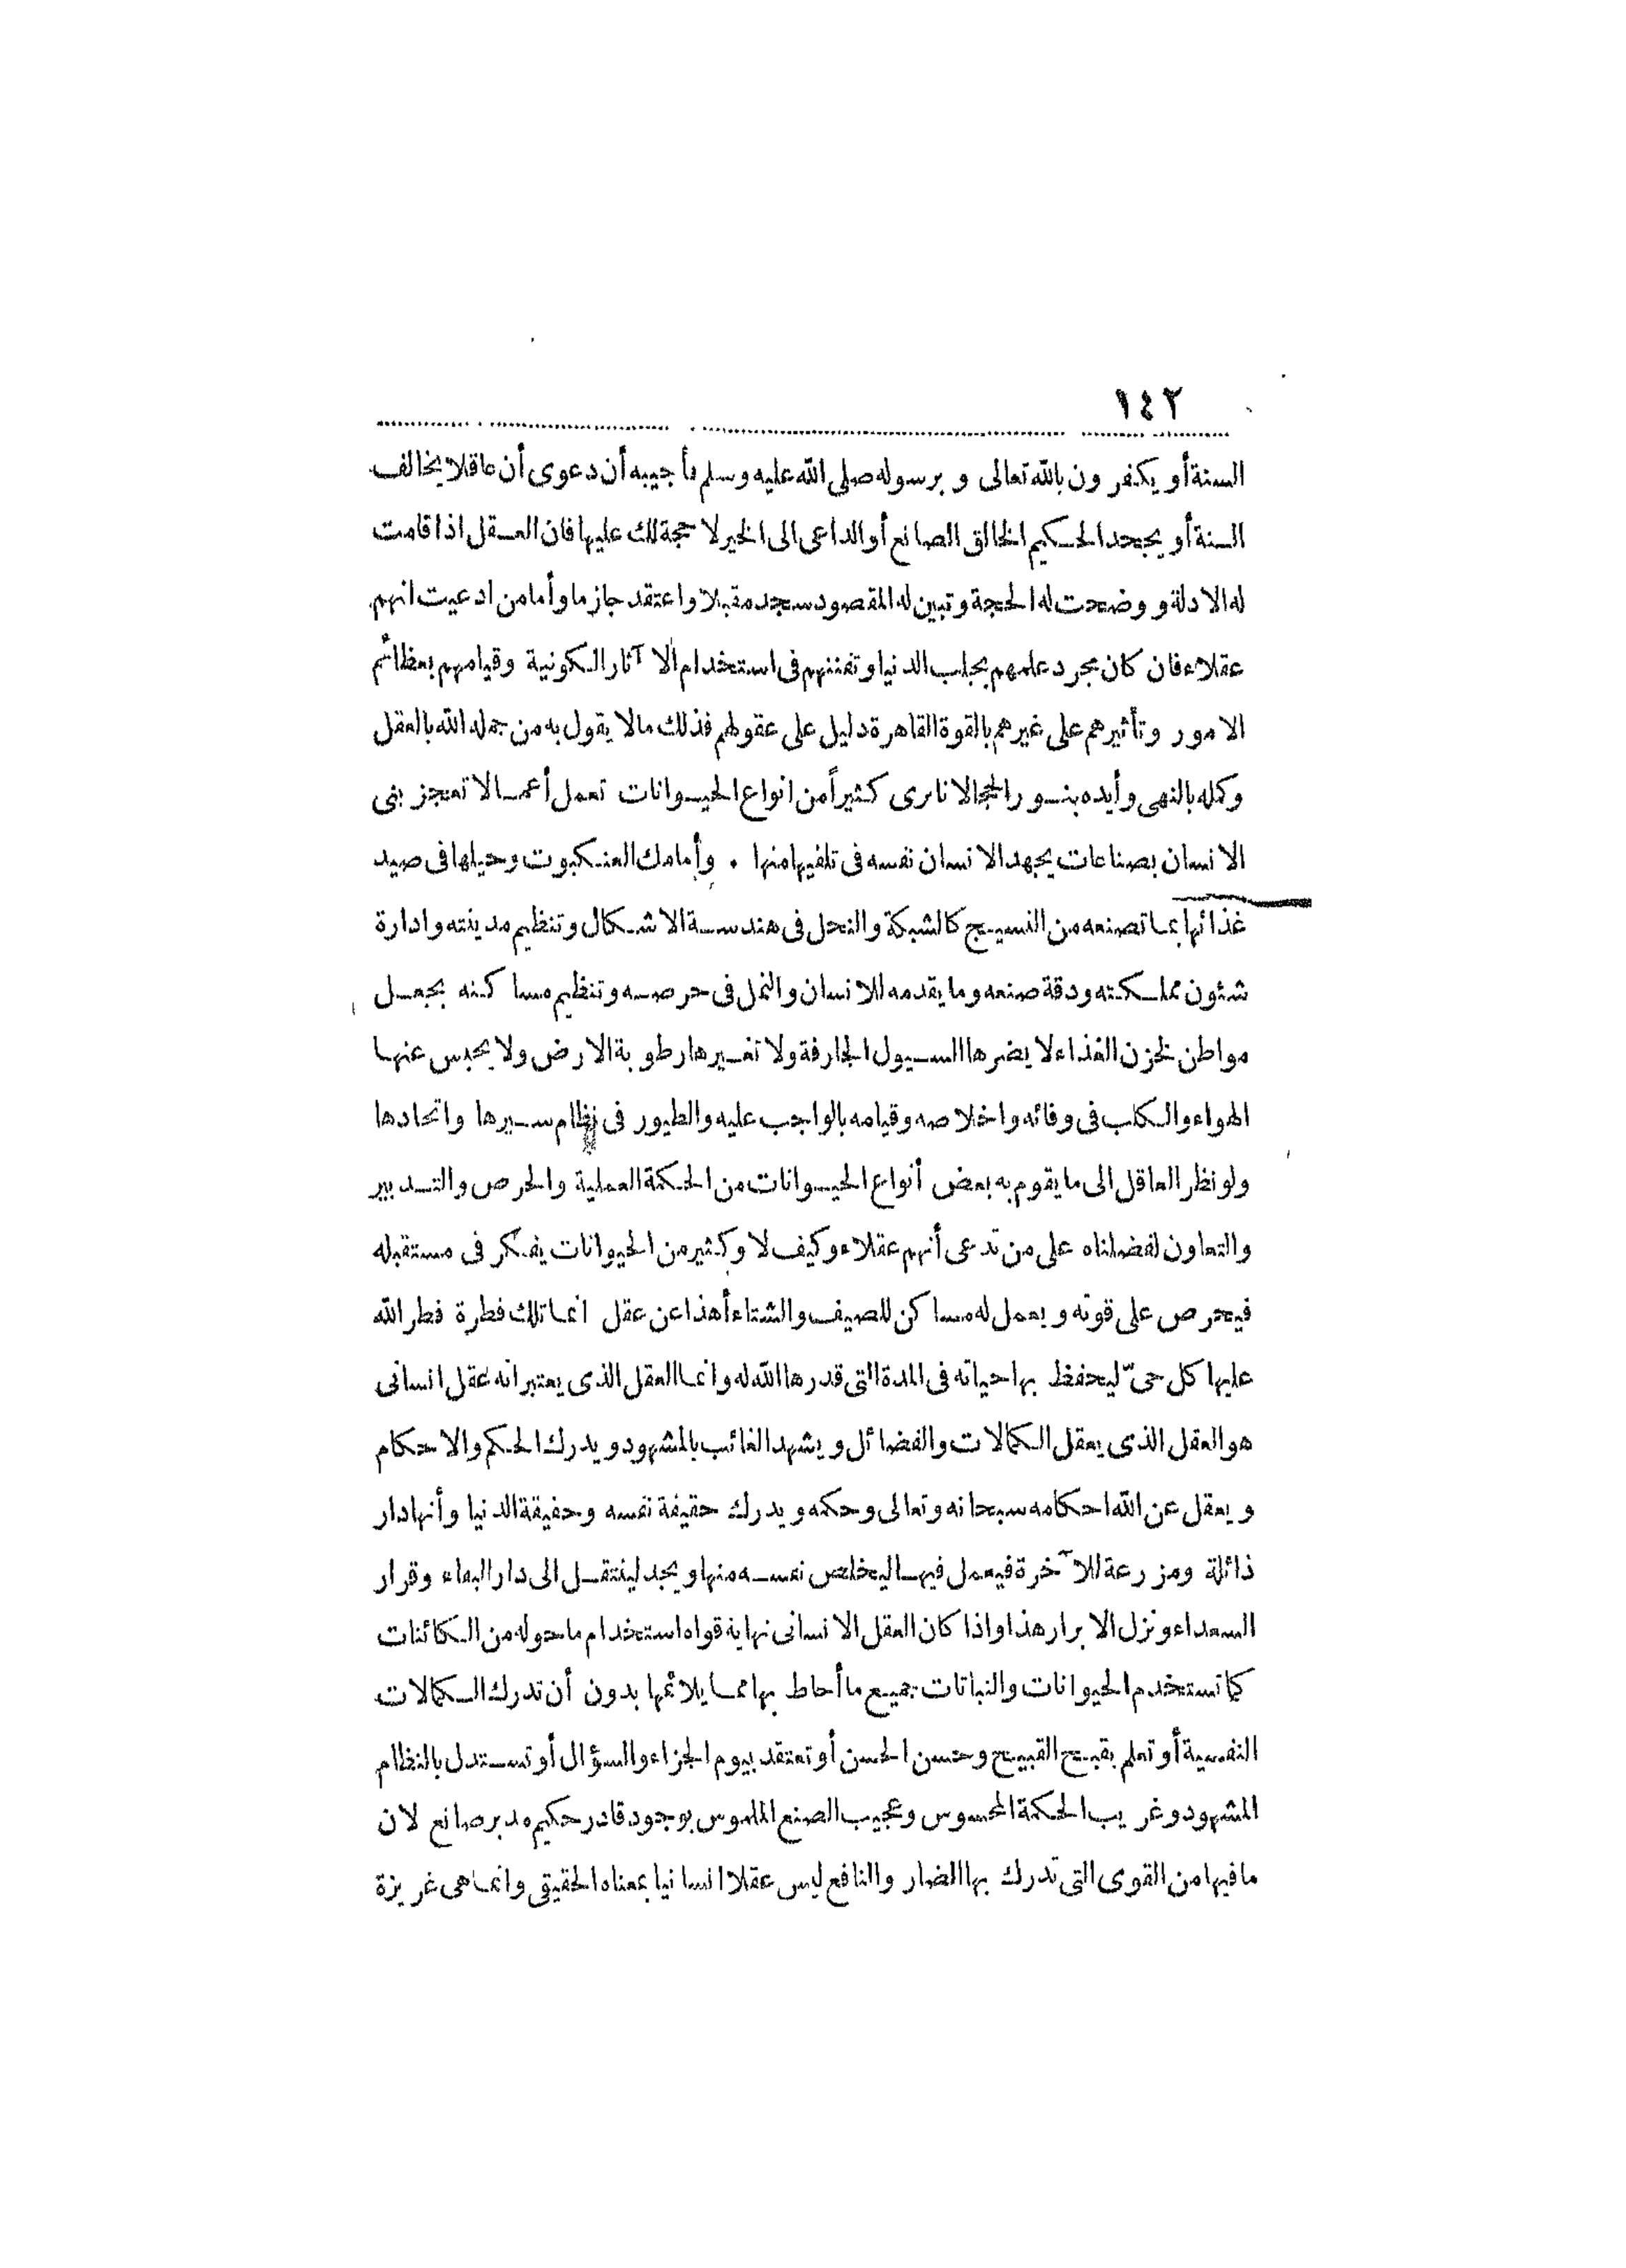 ١٤٢
السنة أو يكفرون بالله تعالى وبرسوله صلى الله عليه وسلم فأجيبه أن دعوى أن عاقلا يخالف
السنة أو يجحد الحكيم الخالق الصانع أو الداعى الى الخير لا حجة لك عليها فان العقل اذا قامت
له الادلة ووضحت له الحجة وتبين له المقصود سجد مقبلا واعتقد جازما وأما من ادعيت انهم
عقلاء فان كان مجرد علمهم بجلب الدنيا وتفننهم فى استخدام الا آثار الكونية وقيامهم بعظائم
الامور وتأثيرهم على غيرهم بالقوة القاهرة دليل على عقولهم فذلك ما لا يقول به من جمله الله بالعقل
وكمله بالنهى وأيده بنور الحجا لانا نرى كثيراً من انواع الحيوانات تعمل أعمالا تعجز بنى
الانسان بصناعات يجهد الانسان نفسه فى تلقيها منها . وأمامك العنكبوت وحيلها فى صيد
غذائها بما تصنعه من النسيج كالشبكة والنحل فى هندسة الاشكال وتنظيم مدينته وادارة
شئون مملكته ودقة صنعه وما يقدمه للانسان والنمل فى حرصه وتنظيم مساكنه بجعل
مواطن لخزن الغذاء لا يضرها السيول الجارفة ولا تغيرها رطوبة الارض ولا يحبس عنها
الهواء والكلب فى وفائه واخلاصه وقيامه بالواجب عليه والطيور فى نظام سيرها واتحادها
ولو نظر العاقل الى ما يقوم به بعض أنواع الحيوانات من الحكمة العملية والحرص والتدبير
والتعاون لفضلناه على من تدعى أنهم عقلاء وكيف لا وكثير من الحيوانات يفكر فى مستقبله
فيحرص على قوته ويعمل له مساكن للصيف والشتاء أهذا عن عقل انما تلك فطرة فطر الله
عليها كل حىّ ليحفظ بها حياته فى المدة التى قدرها الله له وانما العقل الذى يعتبر انه عقل انسانى
هو العقل الذى يعقل الكمالات والفضائل ويشهد الغائب بالمشهود ويدرك الحكم والاحكام
ويعقل عن الله احكامه سبحانه وتعالى وحكمه ويدرك حقيقة نفسه وحقيقة الدنيا وأنها دار
زائلة ومزرعة للآخرة فيعمل فيها ليخلص نفسه منها ويجد لينتقل الى دار البقاء وقرار
السعداء ونزل الابرار هذا واذا كان العقل الانسانى نهاية قواه استخدام ما حوله من الكائنات
كما تستخدم الحيوانات والنباتات جميع ما أحاط بها مما يلائمها بدون أن تدرك الكمالات
النفسية أو تعلم بقبح القبيح وحسن الحسن أو تعتقد بيوم الجزاء والسؤال أو تستدل بالنظام
المشهود وغريب الحكمة المحسوس وعجيب الصنع الملموس بوجود قادر حكيم مدبر صانع لان
ما فيها من القوى التى تدرك بها الضار والنافع ليس عقلا انسانيا بمعناه الحقيقى وانما هى غريزة